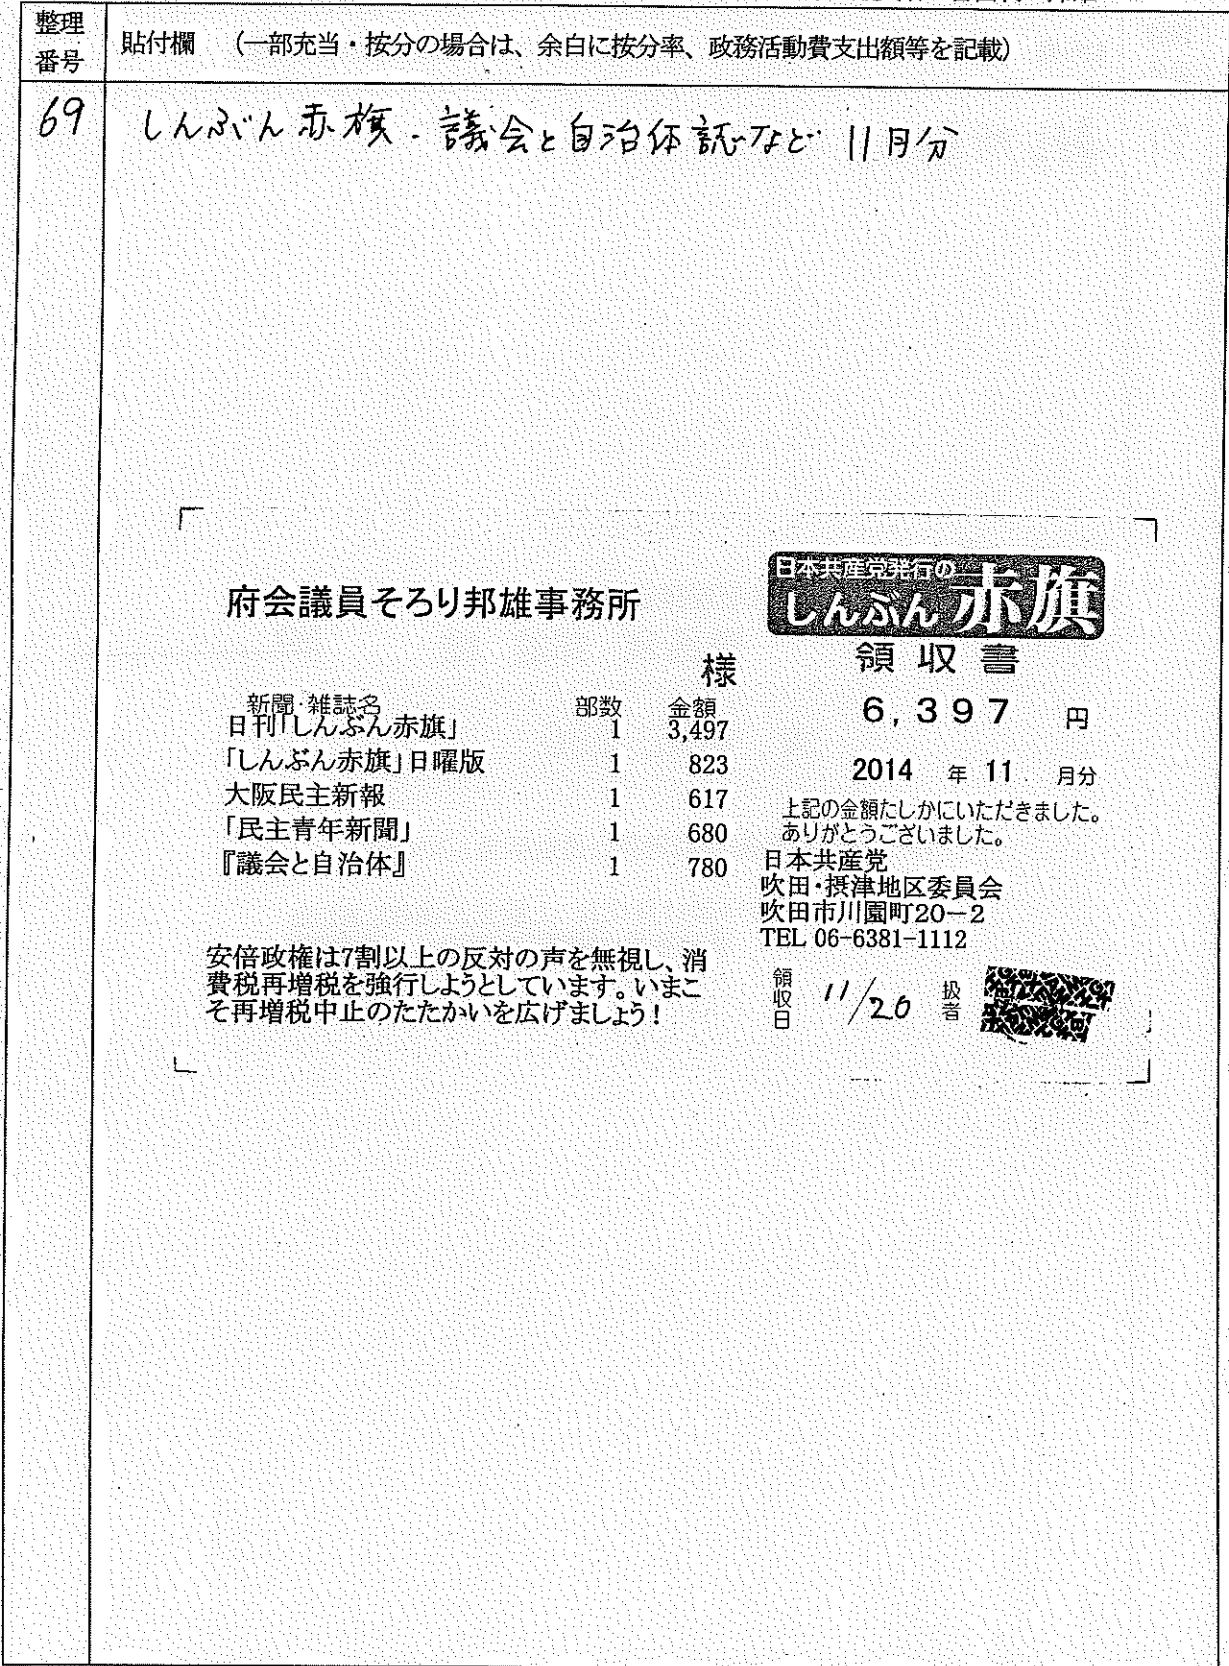 整理
番号
貼付欄 (一部充当・按分の場合は、余白に按分率、政務活動費支出額等を記載)
69
しんぶん赤旗・議会と自治体誌など 11月分
府会議員そろり邦雄事務所
様
新聞・雑誌名 部数 金額
日刊「しんぶん赤旗」 1 3,497
「しんぶん赤旗」日曜版 1 823
大阪民主新報 1 617
「民主青年新聞」 1 680
『議会と自治体』 1 780
安倍政権は7割以上の反対の声を無視し、消
費税再増税を強行しようとしています。いまこ
そ再増税中止のたたかいを広げましょう!
日本共産党発行の
しんぶん赤旗
領収書
6,397 円
2014 年 11 月分
上記の金額たしかにいただきました。
ありがとうございました。
日本共産党
吹田・摂津地区委員会
吹田市川園町20-2
TEL 06-6381-1112
領収日 11/20 扱者